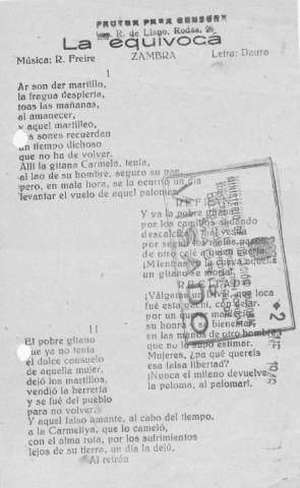 Imp. R. de Lisno. Rodas, 26
La equivoca
Música: R. Freire ZAMBRA Letra: Dauro
I
Ar son der martillo,
la fragua despierta,
toas las mañanas,
al amanecer,
y aquel martilleo,
sones recuerdan
un tiempo dichoso
que no ha de volver.
Allí la gitana Carmela, tenía,
al lao de su hombre, seguro su pan
pero, en mala hora, se le ocurrió un día
levantar el vuelo de aquel palomar.
REFRÁN
Y va la pobre gitana
por los caminos andando
descalcita y mal vestía
por seguir los
de otro
¡Mientras en la cueva aquella
un gitano se moría!
RECITADO
¡Válgame un divé, que loca
fué esta gachí, con dejar,
por un querer
su honra y bienestar,
en las manos de otro hombre
que no la supo estimar.
Mujeres, ¿pa qué quereis
esa falsa libertad?
¡Nunca el milano devuelve
la paloma, al palomar!.
II
El pobre gitano
que ya no tenía
el dulce consuelo
de aquella mujer,
dejó los martillos,
vendió la herrería
y se fué del pueblo
para no volver.
Y aquel falso amante, al cabo del tiempo,
a la Carmeliya, que lo cameló,
con el alma rota, por los sufrimientos
lejos de su tierra, un día la dejó.
Al refrán